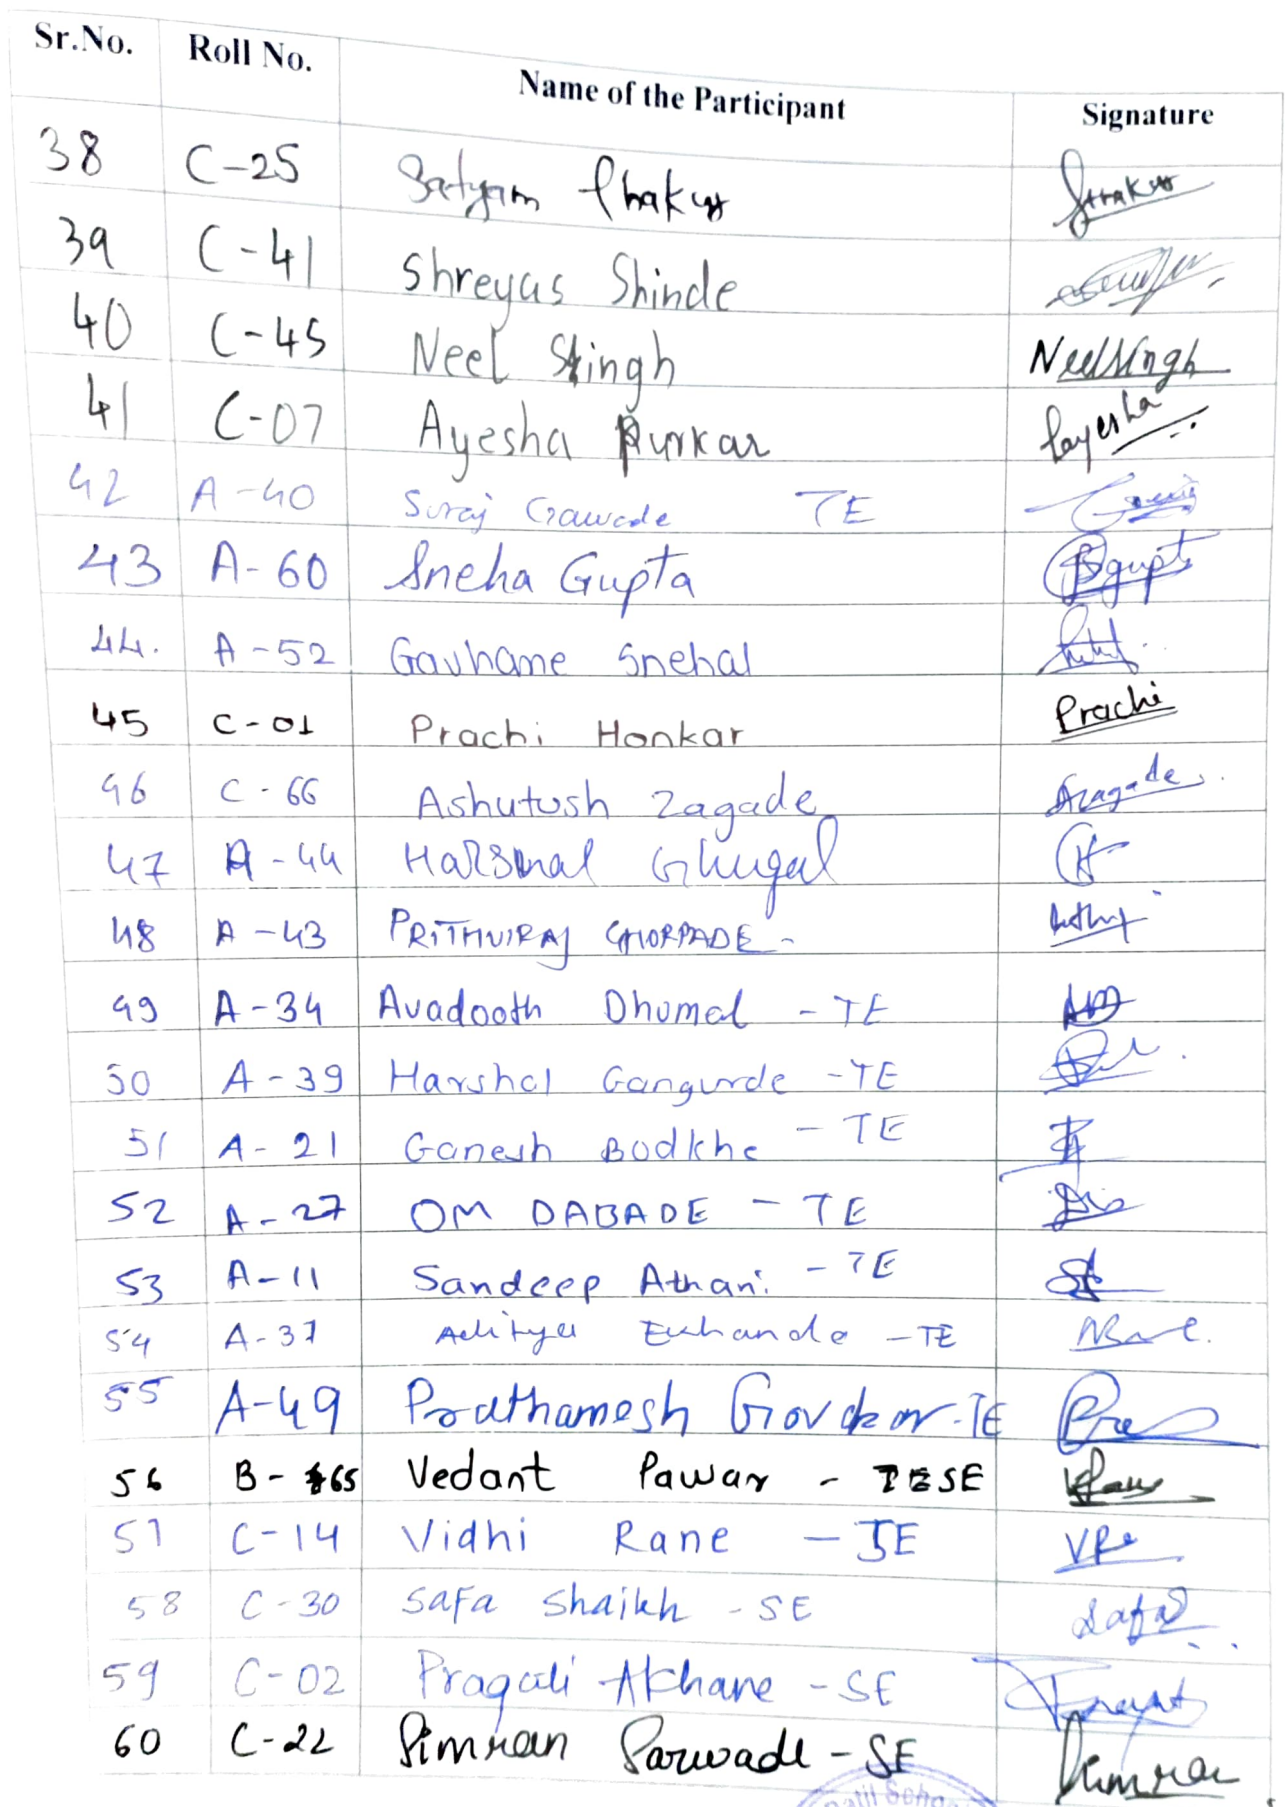 Sr.No. Roll No. Name of the Participant Signature
38 C-25 Satyam Thakur Sthakur
39 C-41 Shreyas Shinde
40 C-45 Neel Singh NeelSingh
41 C-07 Ayesha Purkar Payesha
42 A-40 Suraj Gawade TE
43 A-60 Sneha Gupta Sgupta
44. A-52 Gavhane Snehal
45 C-01 Prachi Honkar Prachi
46 C-66 Ashutosh Zagade Azagade
47 A-44 Harshal Ghugal
48 A-43 PRITHVIRAJ GHORPADE-
49 A-34 Avadooth Dhumal - TE
50 A-39 Harshal Gangurde - TE
51 A-21 Ganesh Bodkhe - TE
52 A-27 OM DABADE - TE
53 A-11 Sandeep Athani - TE
54 A-37 Aditya Ekhande - TE
55 A-49 Prathamesh Govekar - TE
56 B-65 Vedant Pawar - SE
57 C-14 Vidhi Rane - SE
58 C-30 Safa Shaikh - SE Safa
59 C-02 Pragati Akhane - SE
60 C-22 Simran Sarwade - SE Simran